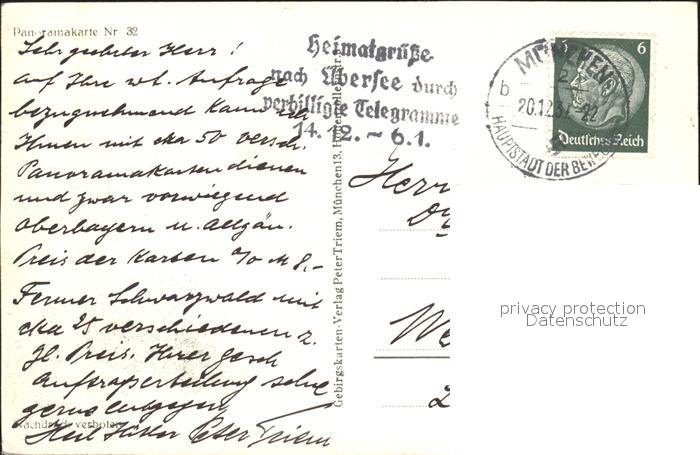 Panoramakarte Nr 32
Sehr geehrter Herr!
auf Ihre wt. Anfrage
bezugnehmend kann ich
Ihnen mit cka 50 versch.
Panoramakarten dienen
und zwar vorwiegend
Oberbayern u. Allgäu.
Preis der Karten % M 8,-
Ferner Schwarzwald mit
cka 25 verschiedenen z.
gl. Preis. Ihrer gesch
Auftragserteilung sehe
gerne entgegen
Nachdruck verboten
Heil Hitler Peter Triem
Gebirgskarten-Verlag Peter Triem, München 13,
Heimatgrüße
nach Übersee durch
verbilligte Telegramme
14.12.-6.1.
MÜNCHEN
b
20.12.37-22
HAUPTSTADT DER BEWEG
6
Deutsches Reich
Herrn
We
2
privacy protection
Datenschutz